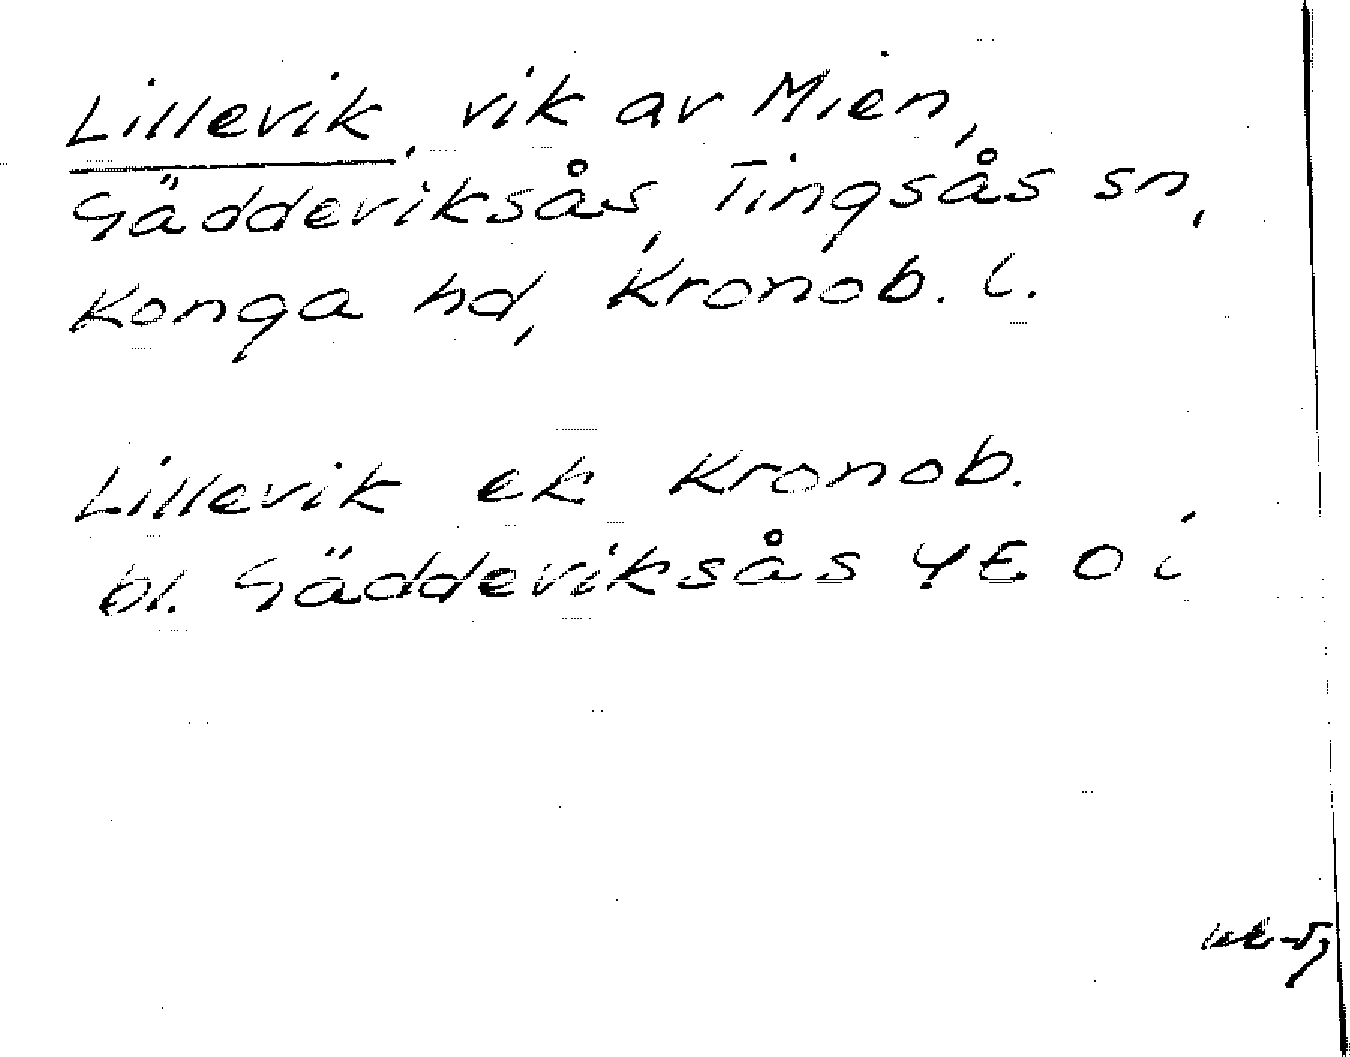 Lillevik, vik av Mien,
Gädderviksås, Tingsås sn,
Konga hd, Kronob. l.
Lillevik ek Kronob.
bl. Gädderviksås 4E 0i